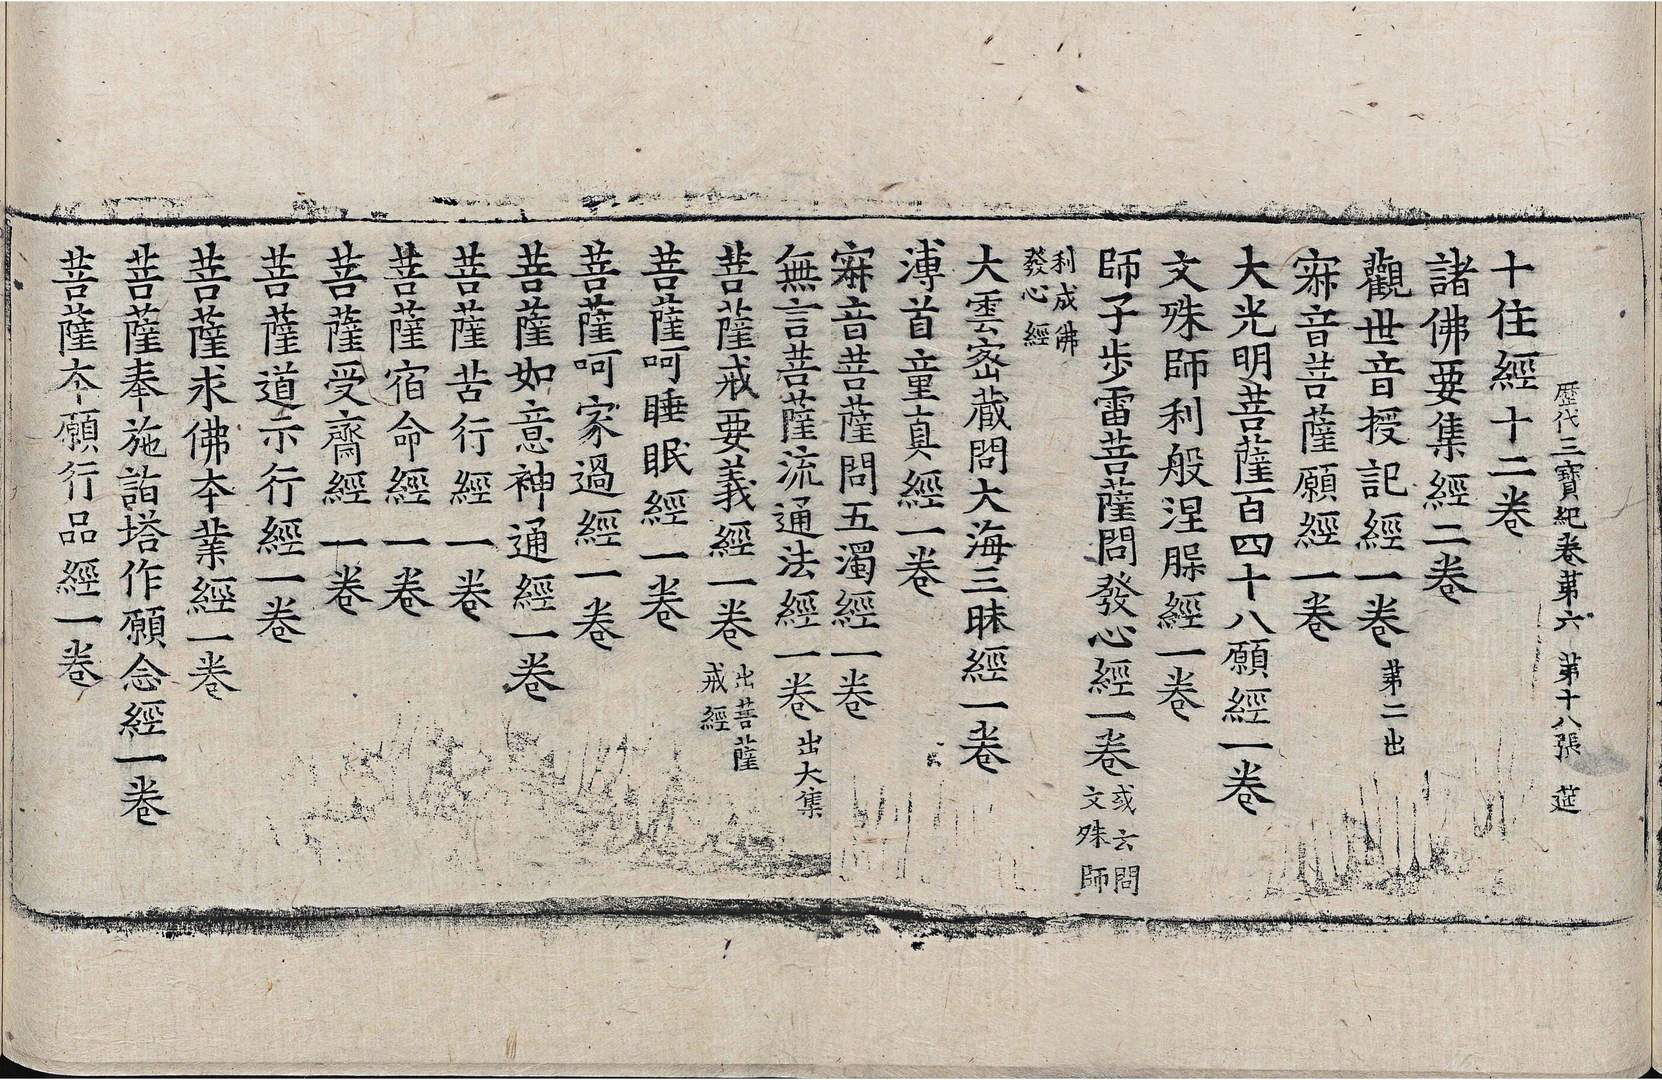 歷代三寶紀卷苐六 苐十八張 莚
十住經十二卷
諸佛要集經二卷
觀世音授記經一卷 苐二出
寂音菩薩願經一卷
大光明菩薩百四十八願經一卷
文殊師利般涅槃經一卷
師子步雷菩薩問發心經一卷 或云問文殊師
利成佛發心經
大雲密蔵問大海三昧經一卷
溥首童真經一卷
寂音菩薩問五濁經一卷
無言菩薩流通法經一卷 出大集
菩薩戒要義經一卷 出菩薩戒經
菩薩呵睡眠經一卷
菩薩呵家過經一卷
菩薩如意神通經一卷
菩薩苦行經一卷
菩薩宿命經一卷
菩薩受齋經一卷
菩薩道示行經一卷
菩薩求佛夲業經一卷
菩薩奉施詣塔作願念經一卷
菩薩夲願行品經一卷